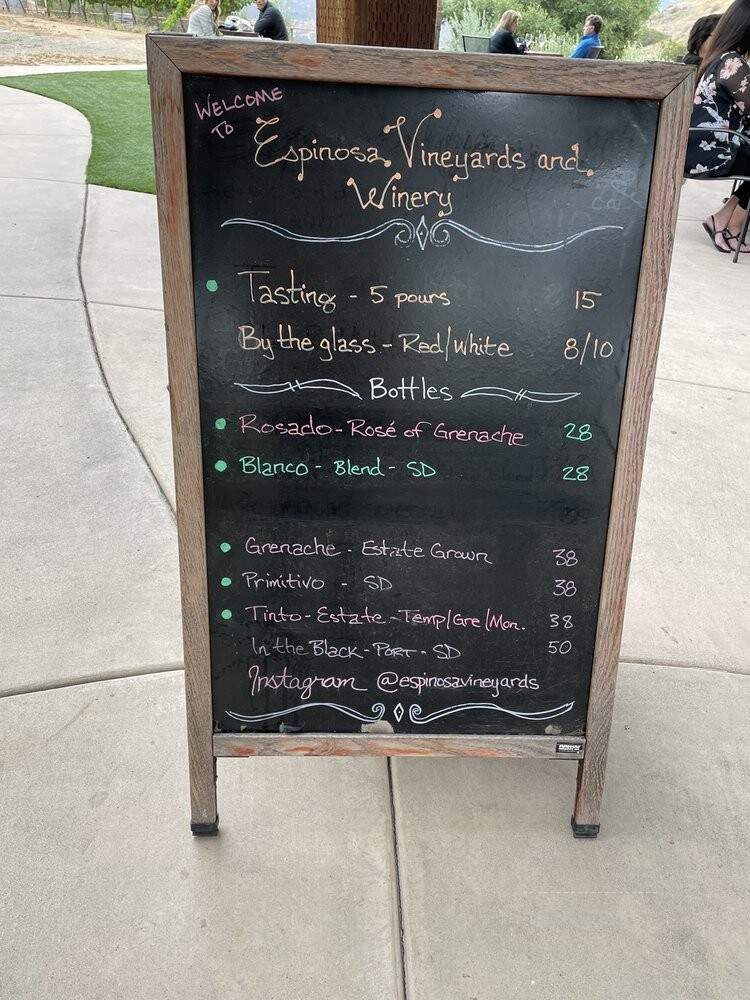 WELCOME
TO
Espinosa Vineyards and
Winery
Tasting - 5 pours 15
By the glass - Red/White 8/10
Bottles
Rosado - Rosé of Grenache 28
Blanco - Blend - SD 28
Grenache - Estate Grown 38
Primitivo - SD 38
Tinto - Estate - Temp/Gre/Mon. 38
In the Black - Port - SD 50
Instagram @espinosavineyards